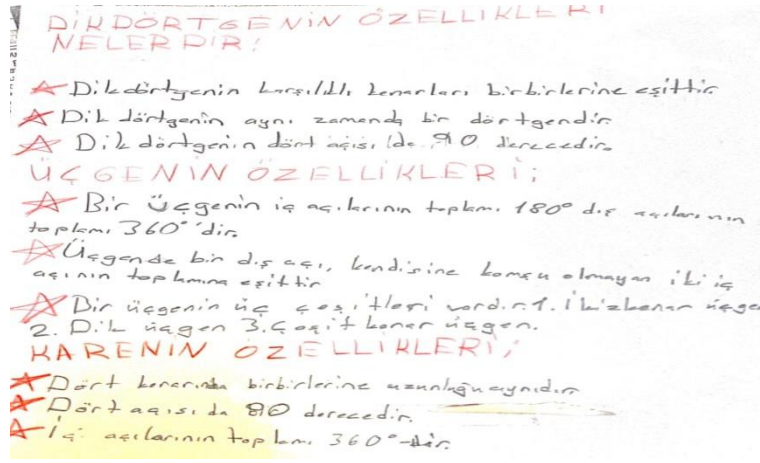 DİKDÖRTGENİN ÖZELLİKLERİ
NELERDİR!
Dikdörtgenin karşılıklı kenarları birbirlerine eşittir.
Dikdörtgenin aynı zamanda bir dörtgendir.
Dikdörtgenin dört açısıda 90 derecedir.
ÜÇGENİN ÖZELLİKLERİ;
Bir üçgenin iç açılarının toplamı 180° dış açılarının
toplamı 360°'dir.
Üçgende bir dış açı, kendisine komşu olmayan iki iç
açının toplamına eşittir
Bir üçgenin üç çeşitleri vardır. 1. İkizkenar üçgen
2. Dik üçgen 3. Çeşit kenar üçgen.
KARENİN ÖZELLİKLERİ;
Dört kenarında birbirlerine uzunluğu aynıdır.
Dört açısı da 90 derecedir.
İç açılarının toplamı 360°-dir.